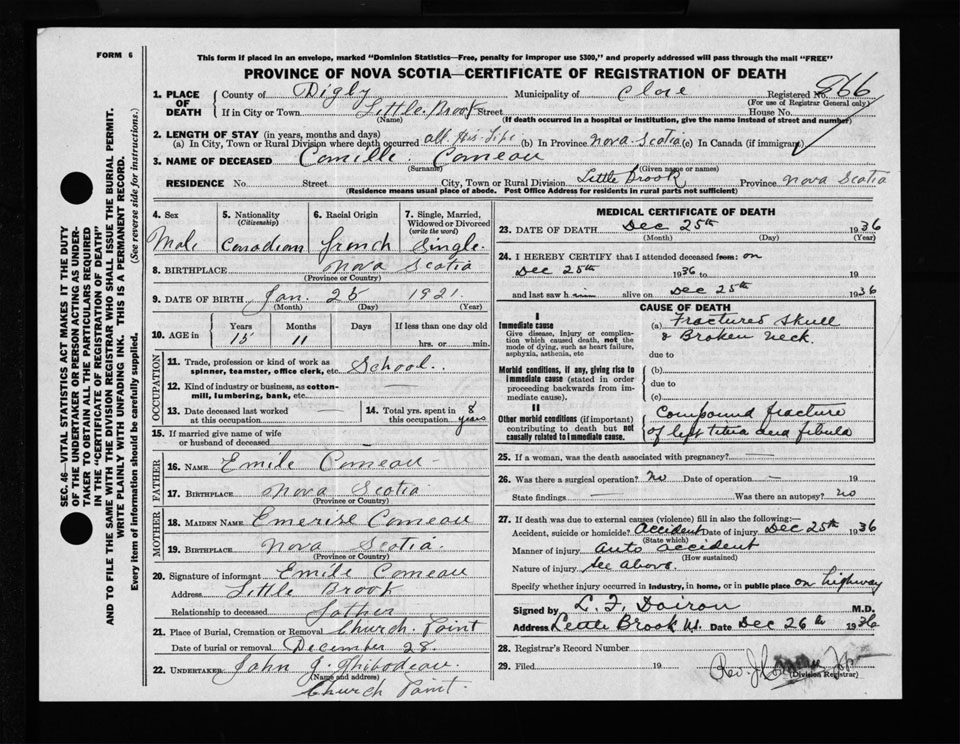 FORM 6
This form if placed in an envelope, marked “Dominion Statistics—Free, penalty for improper use $300,” and properly addressed will pass through the mail “FREE”
PROVINCE OF NOVA SCOTIA—CERTIFICATE OF REGISTRATION OF DEATH
SEC. 46—VITAL STATISTICS ACT MAKES IT THE DUTY
OF THE UNDERTAKER OR PERSON ACTING AS UNDER-
TAKER TO OBTAIN ALL THE PARTICULARS REQUIRED
IN THE “CERTIFICATE OF REGISTRATION OF DEATH”
AND TO FILE THE SAME WITH THE DIVISION REGISTRAR WHO SHALL ISSUE THE BURIAL PERMIT.
WRITE PLAINLY WITH UNFADING INK. THIS IS A PERMANENT RECORD.
Every item of information should be carefully supplied. (See reverse side for instructions.)
1. PLACE OF DEATH County of Digby Municipality of Clare Registered No. 866
(For use of Registrar General only)
If in City or Town Little Brook Street House No.
(Name) (If death occurred in a hospital or institution, give the name instead of street and number)
2. LENGTH OF STAY (in years, months and days)
(a) In City, Town or Rural Division where death occurred all his life (b) In Province Nova Scotia (c) In Canada (if immigrant)
3. NAME OF DECEASED Camille Comeau
(Surname) (Given name or names)
RESIDENCE No. Street City, Town or Rural Division Little Brook Province Nova Scotia
(Residence means usual place of abode. Post Office Address for residents in rural parts not sufficient)
4. Sex 5. Nationality (Citizenship) 6. Racial Origin 7. Single, Married, Widowed or Divorced (write the word)
Male Canadian french Single.
8. BIRTHPLACE Nova Scotia
(Province or Country)
9. DATE OF BIRTH Jan. 25 1921
(Month) (Day) (Year)
10. AGE in Years Months Days If less than one day old
15 11 hrs. or min.
OCCUPATION
11. Trade, profession or kind of work as
spinner, teamster, office clerk, etc. School
12. Kind of industry or business, as cotton-
mill, lumbering, bank, etc.
13. Date deceased last worked
at this occupation
14. Total yrs. spent in
this occupation 8 years
15. If married give name of wife
or husband of deceased
FATHER
16. NAME Emile Comeau
17. BIRTHPLACE Nova Scotia
(Province or Country)
MOTHER
18. MAIDEN NAME Emerise Comeau
19. BIRTHPLACE Nova Scotia
(Province or Country)
20. Signature of informant Emile Comeau
Address Little Brook
Relationship to deceased father
21. Place of Burial, Cremation or Removal Church Point
Date of burial or removal December 28.
22. UNDERTAKER John J. Thibodeau.
(Name and address)
Church Point.
MEDICAL CERTIFICATE OF DEATH
23. DATE OF DEATH Dec 25th 1936
(Month) (Day) (Year)
24. I HEREBY CERTIFY that I attended deceased from: on
Dec 25th 1936 to 19
and last saw him alive on Dec 25th 1936
CAUSE OF DEATH
I
Immediate cause
Give disease, injury or complica-
tion which caused death, not the
mode of dying, such as heart failure,
asphyxia, asthenia, etc
(a) Fractured Skull
& Broken neck.
due to
Morbid conditions, if any, giving rise to
immediate cause (stated in order
proceeding backwards from im-
mediate cause).
(b)
due to
(c)
II
Other morbid conditions (if important)
contributing to death but not
causally related to immediate cause.
Compound fracture
of left tibia and fibula
25. If a woman, was the death associated with pregnancy?
26. Was there a surgical operation? No Date of operation 19
State findings Was there an autopsy? no
27. If death was due to external causes (violence) fill in also the following:—
Accident, suicide or homicide? Accident Date of injury Dec 25th 1936
(State which)
Manner of injury auto accident
(How sustained)
Nature of injury See above.
Specify whether injury occurred in industry, in home, or in public place on highway
Signed by M.D.
Address Little Brook Date Dec 26th 1936
28. Registrar's Record Number
29. Filed 19 Rev.
(Division Registrar)